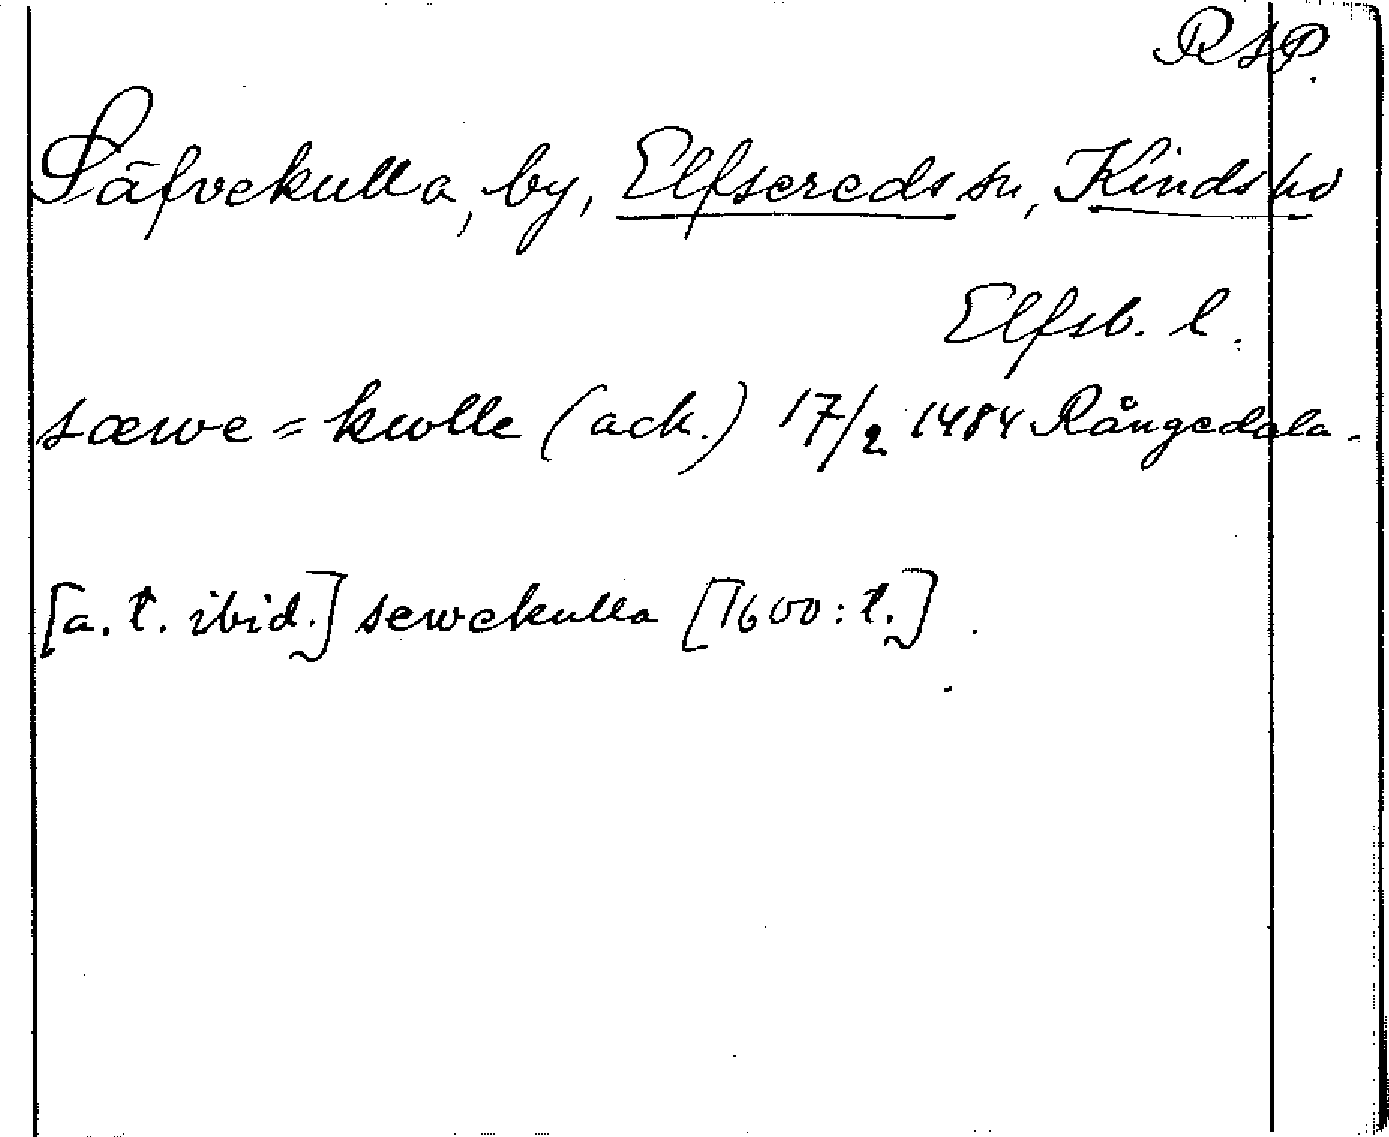 RAP.
Säfvekulla, by, Elfsereds sn, Kinds hd
Elfsb. l.
sæwe=kwlle (ack.) 17/2 1484 Rångedala.
[a. t. ibid.] sewekulla [1600:t.].